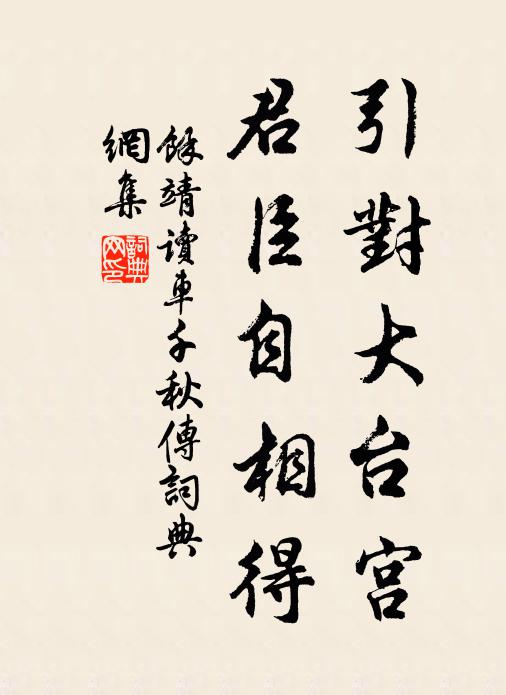 引對大台宫
君臣自相得
餘靖讀車千秋傳詞典
網集
詞典
网印